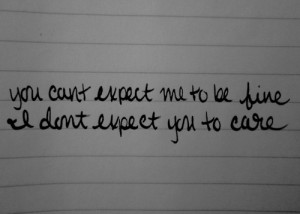 you cant expect me to be fine
& I dont expect you to care